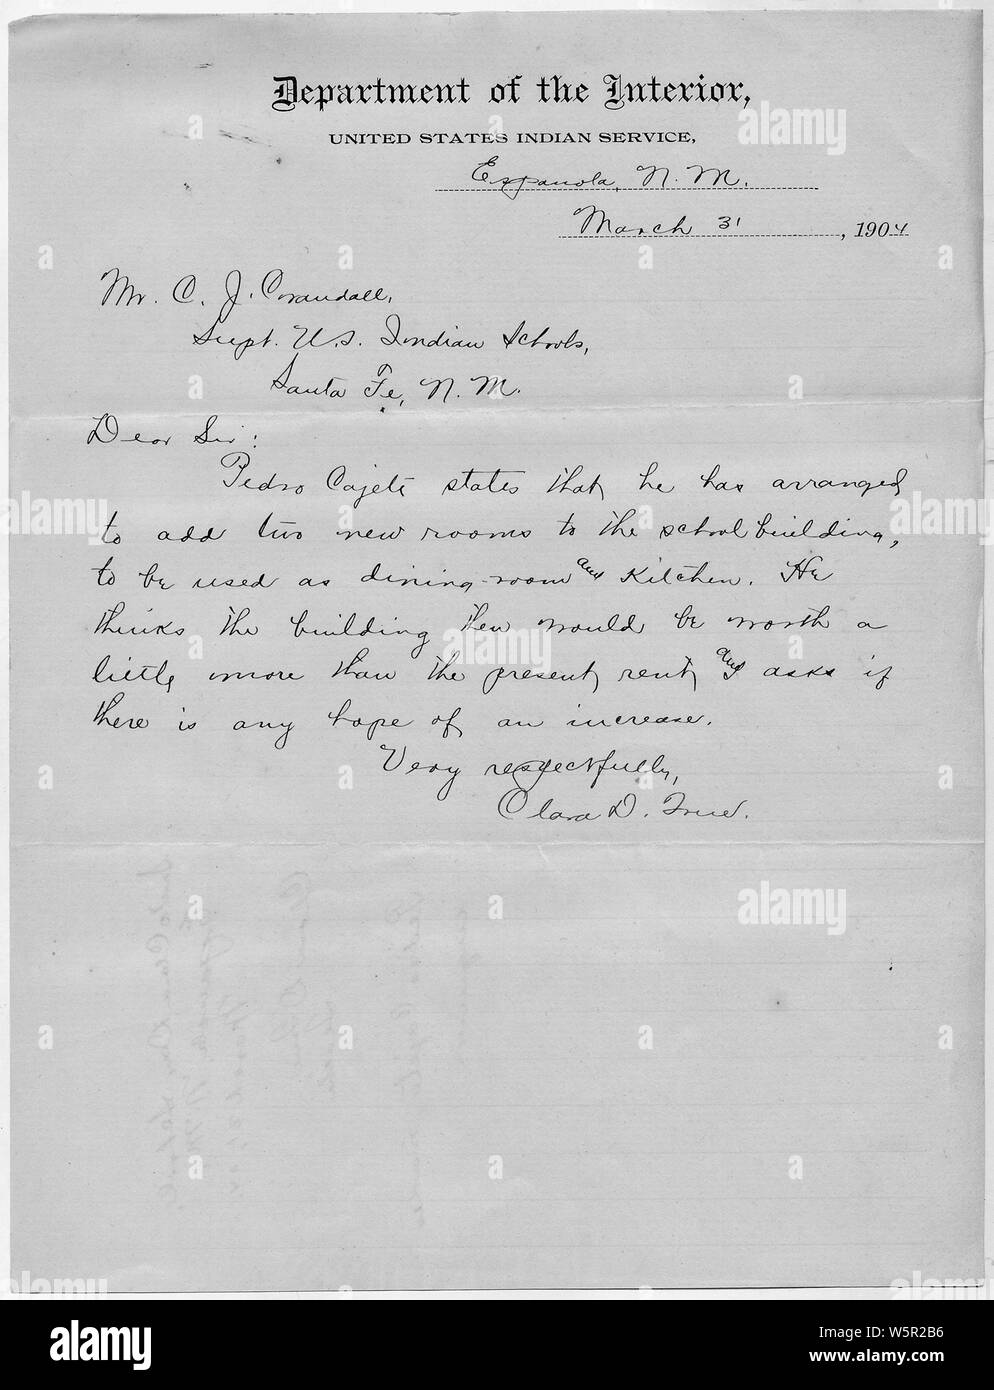 Department of the Interior,
UNITED STATES INDIAN SERVICE,
Espanola, N. M.
March 31, 1904
Mr. C. J. Crandall,
Supt. U.S. Indian Schools,
Santa Fe, N. M.
Dear Sir:
Pedro Cajete states that he has arranged
to add two new rooms to the school building,
to be used as dining-room and kitchen. He
thinks the building then would be worth a
little more than the present rent and asks if
there is any hope of an increase.
Very respectfully,
Clara D. True.
alamy
alamy stock photo
W5R2B6
www.alamy.com